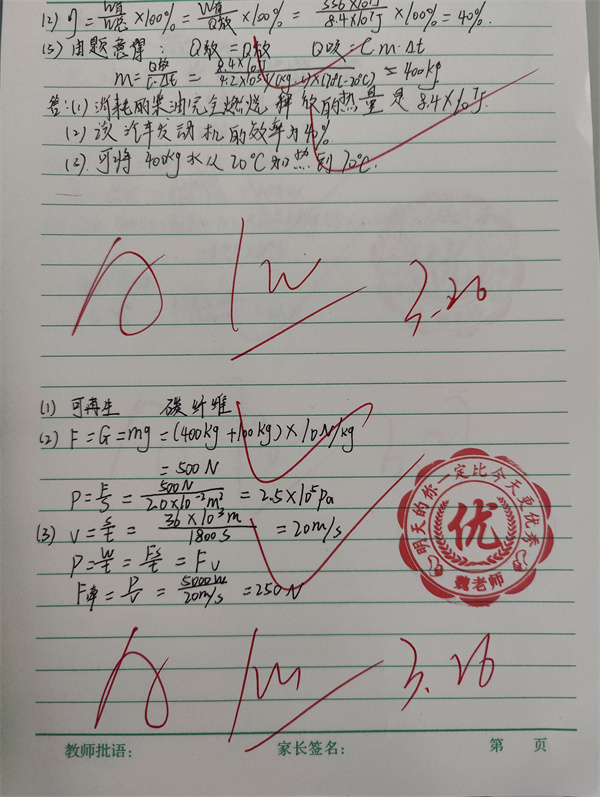 (2) η = W有/W总 ×100% = W有/Q放 ×100% = 3.36×10⁷J/8.4×10⁷J ×100% = 40%.
(3) 由题意得: Q吸 = Q放 Q吸 = C m·Δt
m = Q吸/C·Δt = 8.4×10⁷J/4.2×10³J/(kg·℃)×(70℃-20℃) = 400kg
答: (1) 消耗的柴油完全燃烧释放的热量是 8.4×10⁷J.
(2) 该汽车发动机的效率为40%
(3) 可将 400kg水从20℃加热到70℃.
3.26
(1) 可再生 碳纤维
(2) F=G=mg=(400kg+100kg)×10N/kg
=500N
P=F/S=500N/2.0×10⁻²m²=2.5×10⁵Pa
(3) v=s/t=36×10³m/1800s=20m/s
P=W/t=Fs/t=Fv
F牵=P/v=5000W/20m/s=250N
明天的你一定比今天更优秀
优
魏老师
3.26
教师批语: 家长签名: 第 页